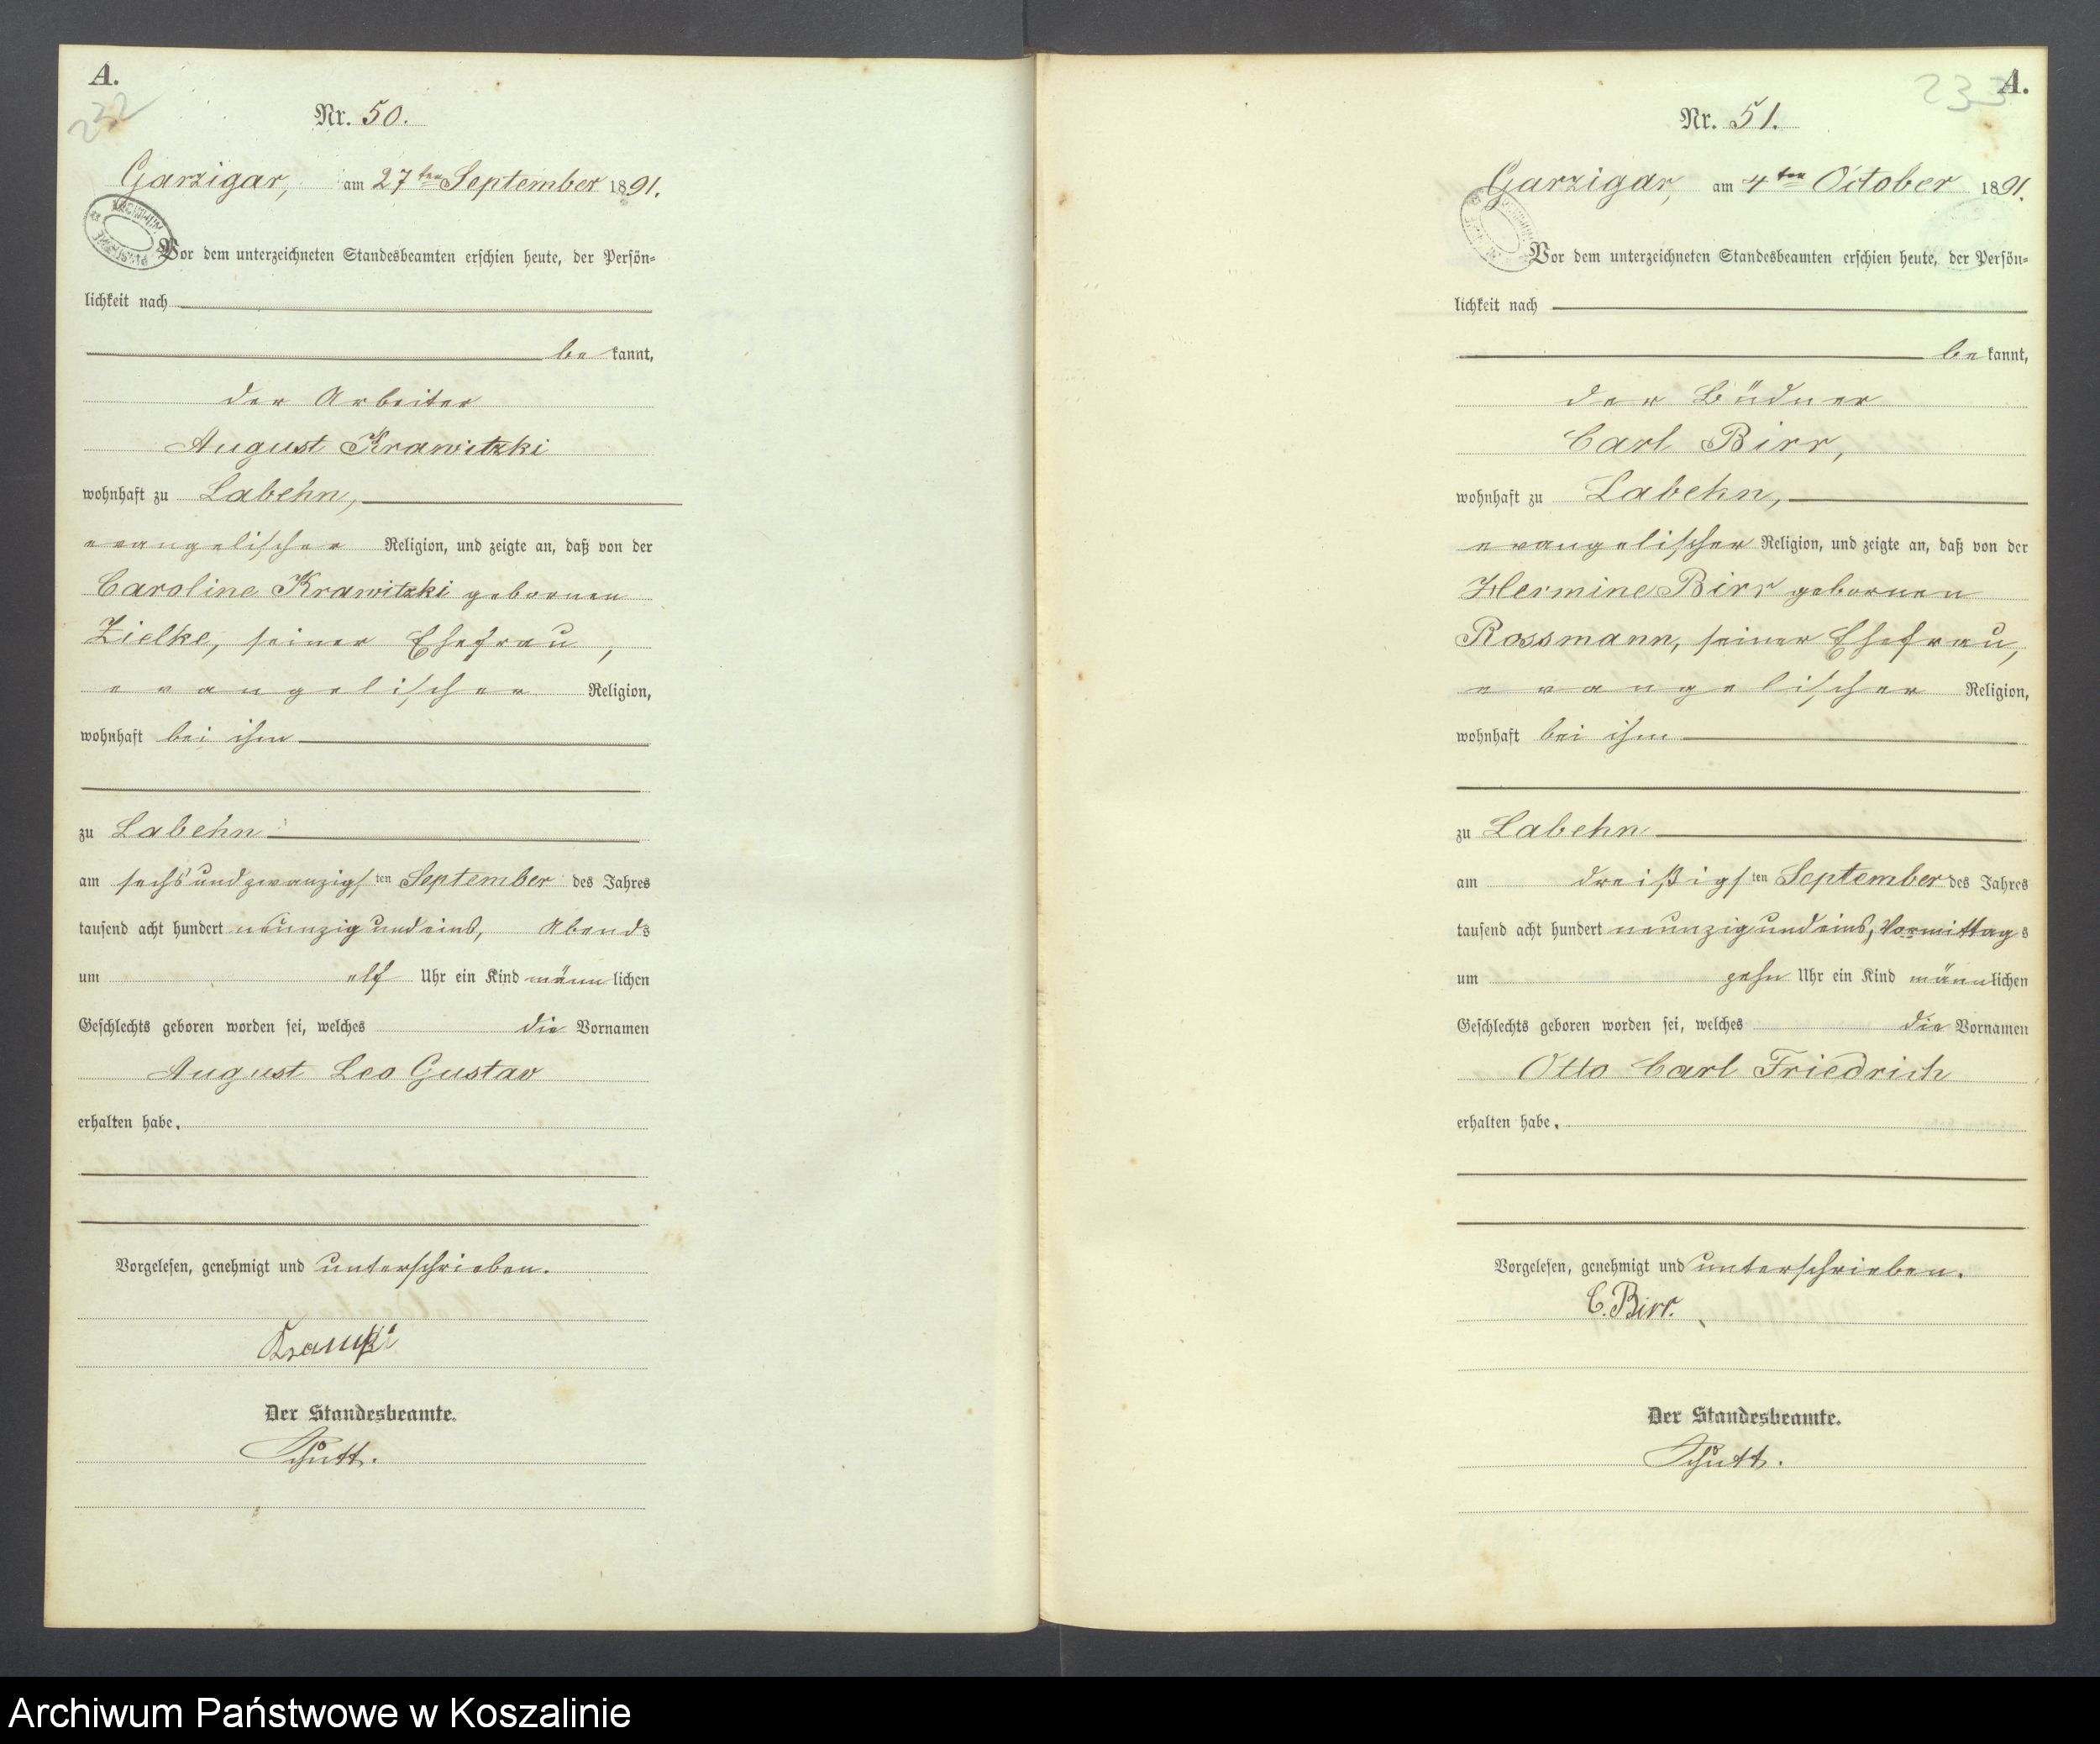 A.
232
Nr. 50.
Garzigar, am 27ten September 1891.
Vor dem unterzeichneten Standesbeamten erschien heute, der Persön-
lichkeit nach
be kannt,
der Arbeiter
August Krawitzki
wohnhaft zu Labehn,
evangelischer Religion, und zeigte an, daß von der
Caroline Krawitzki gebornen
Zielke, seiner Ehefrau,
evangelischer Religion,
wohnhaft bei ihm
zu Labehn
am sechsundzwanzigsten September des Jahres
tausend acht hundert neunzig und eins, Abends
um elf Uhr ein Kind männlichen
Geschlechts geboren worden sei, welches die Vornamen
August Leo Gustav
erhalten habe.
Vorgelesen, genehmigt und unterschrieben.
Der Standesbeamte.
Schutt.
A.
233
Nr. 51.
Garzigar, am 4ten October 1891.
Vor dem unterzeichneten Standesbeamten erschien heute, der Persön-
lichkeit nach
be kannt,
der Büdner
Carl Birr,
wohnhaft zu Labehn,
evangelischer Religion, und zeigte an, daß von der
Hermine Birr gebornen
Rossmann, seiner Ehefrau,
evangelischer Religion,
wohnhaft bei ihm
zu Labehn
am dreißigsten September des Jahres
tausend acht hundert neunzig und eins, Vormittags
um zehn Uhr ein Kind männlichen
Geschlechts geboren worden sei, welches die Vornamen
Otto Carl Friedrich
erhalten habe.
Vorgelesen, genehmigt und unterschrieben.
C. Birr.
Der Standesbeamte.
Schutt.
Archiwum Państwowe w Koszalinie